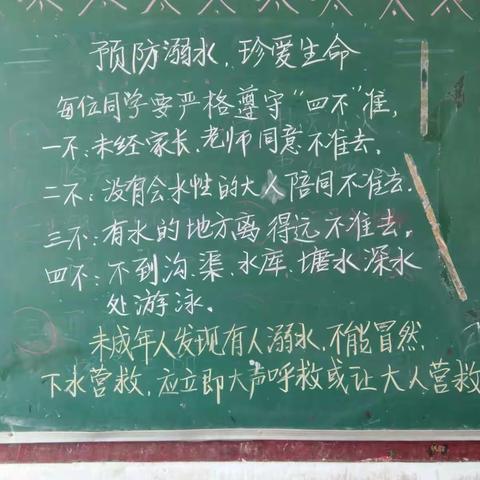 太太太太太太
预防溺水,珍爱生命
每位同学要严格遵守“四不”准,
一不:未经家长、老师同意不准去。
二不:没有会水性的大人陪同不准去.
三不:有水的地方离得远不准去。
四不:不到沟、渠、水库、塘水深水
处游泳。
未成年人发现有人溺水,不能冒然,
下水营救,应立即大声呼救或让大人营救